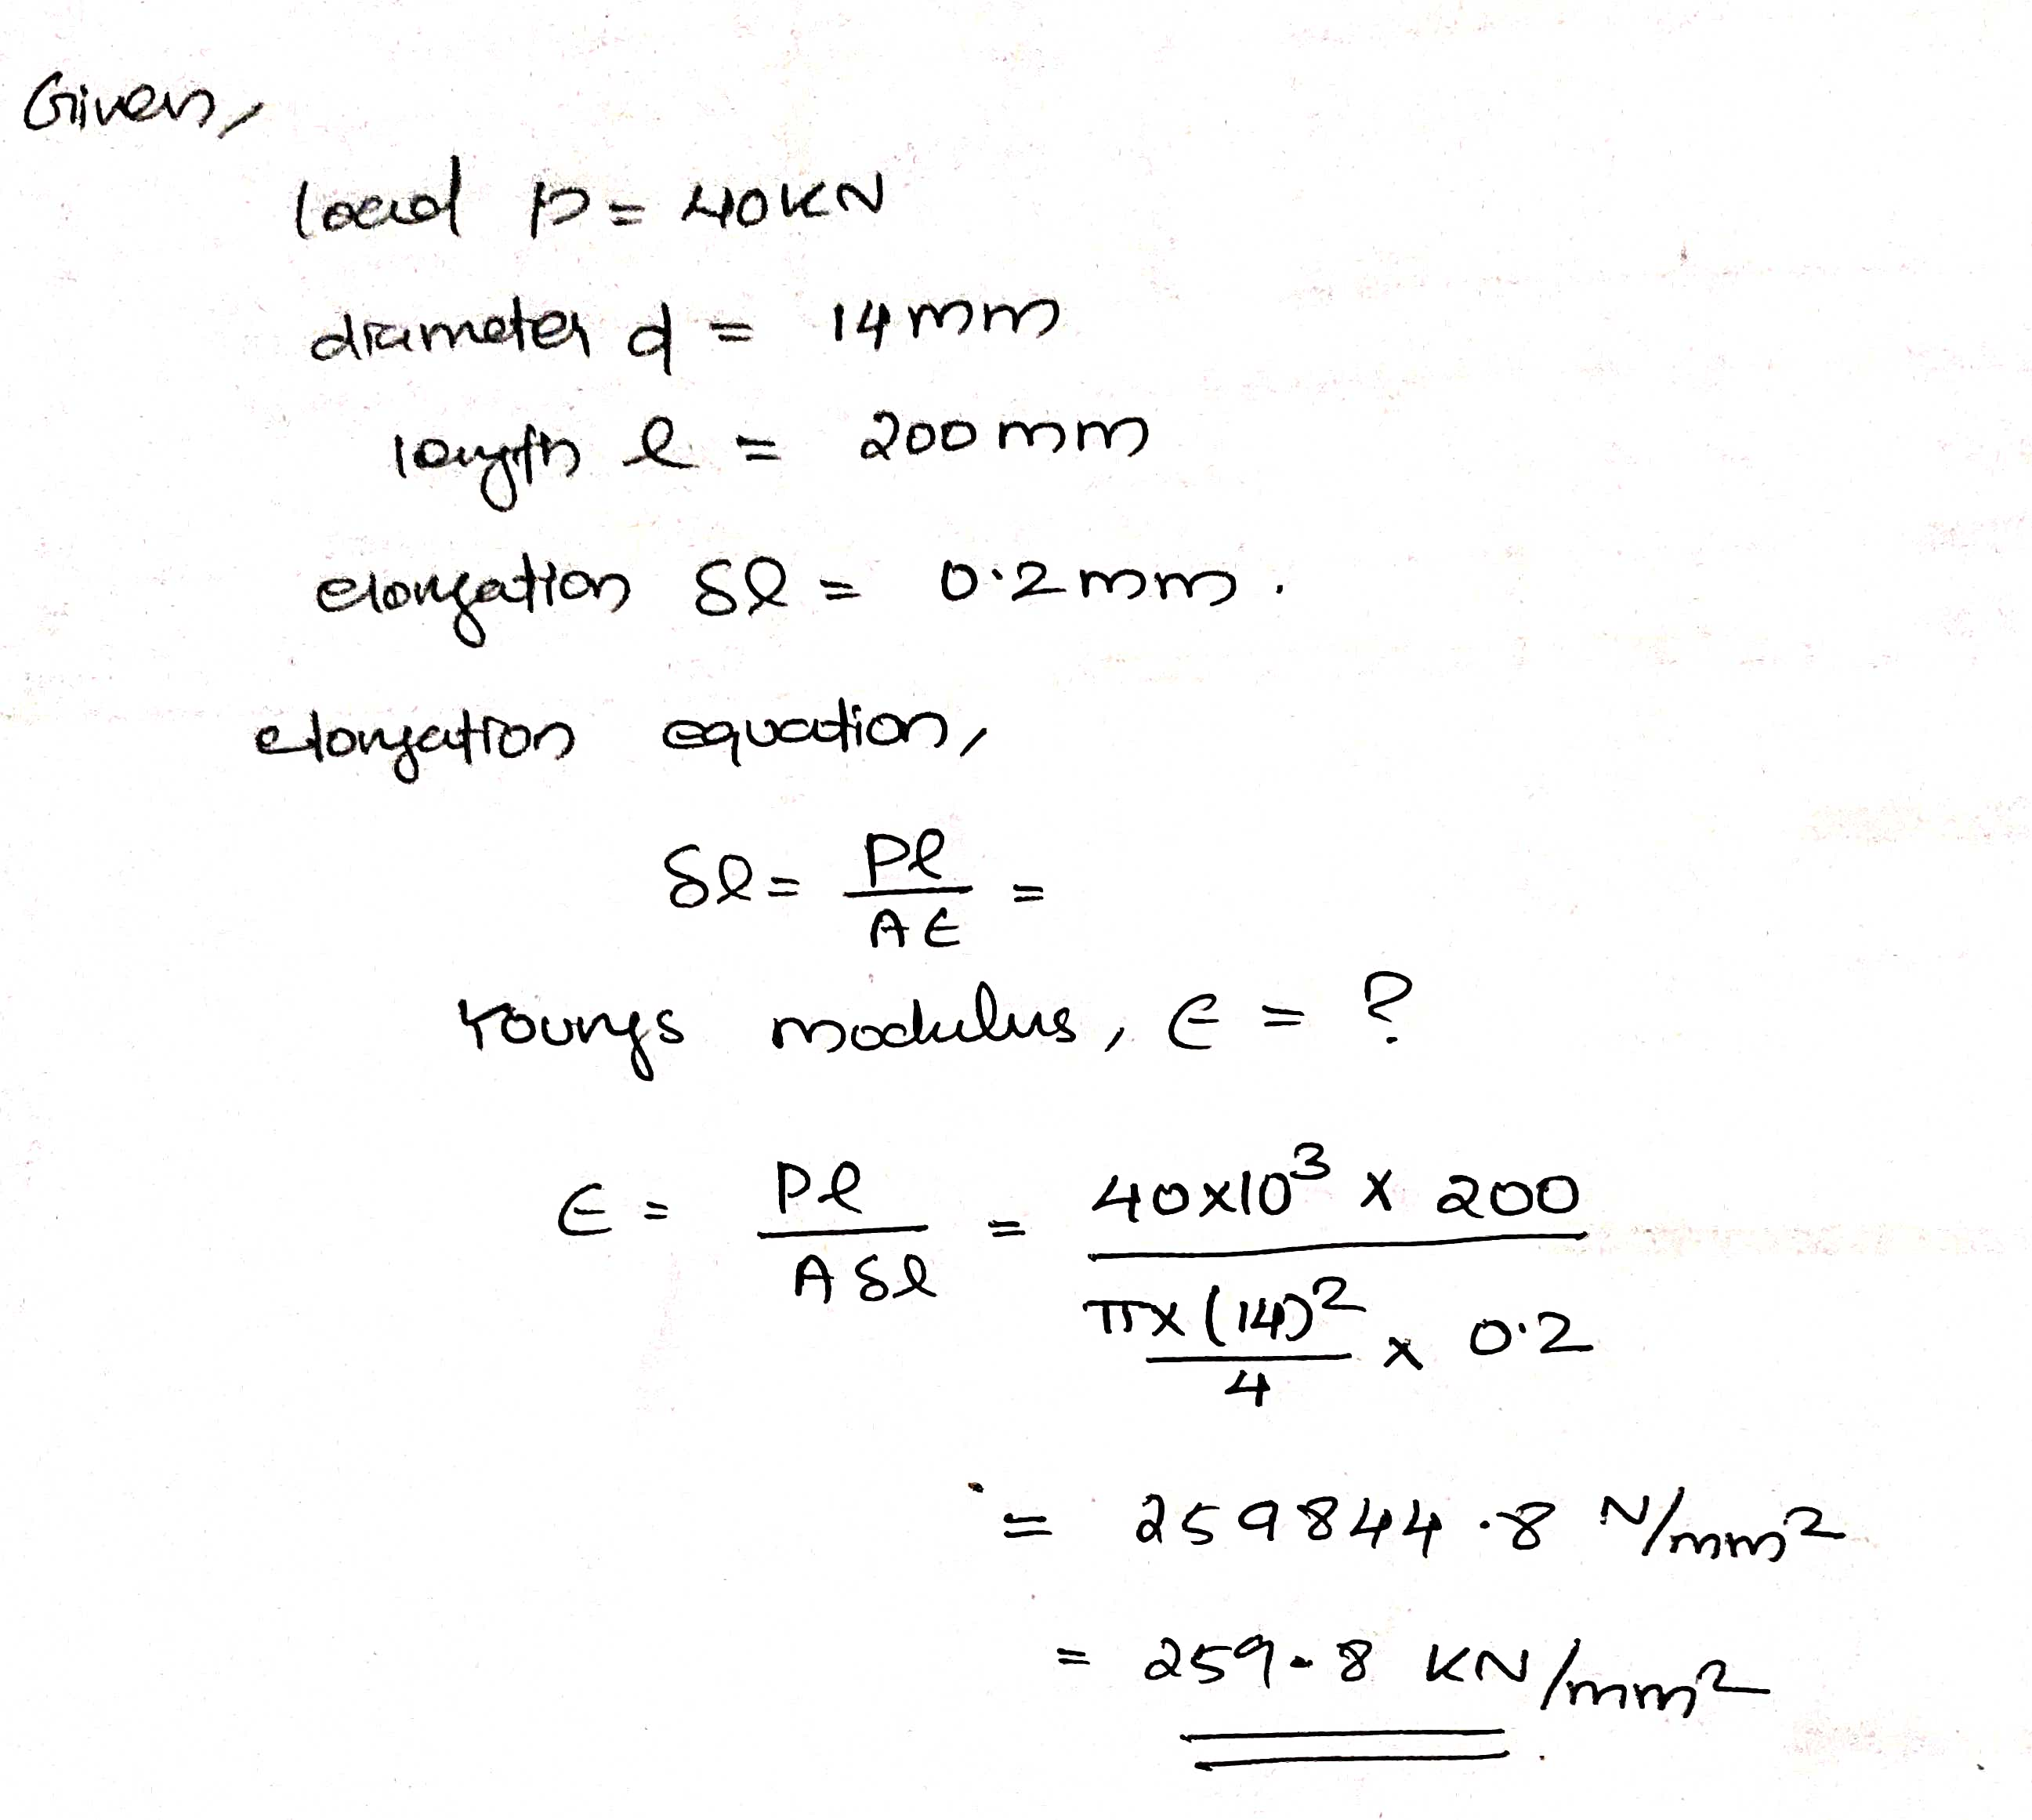 Given,
load P = 40KN
diameter d = 14mm
length l = 200mm
elongation δl = 0.2mm.
elongation equation,
δl = Pl/AE =
Youngs modulus, E = ?
E = Pl/Aδl = 40x10³ x 200 / πx(14)²/4 x 0.2
= 259844.8 N/mm²
= 259.8 KN/mm²